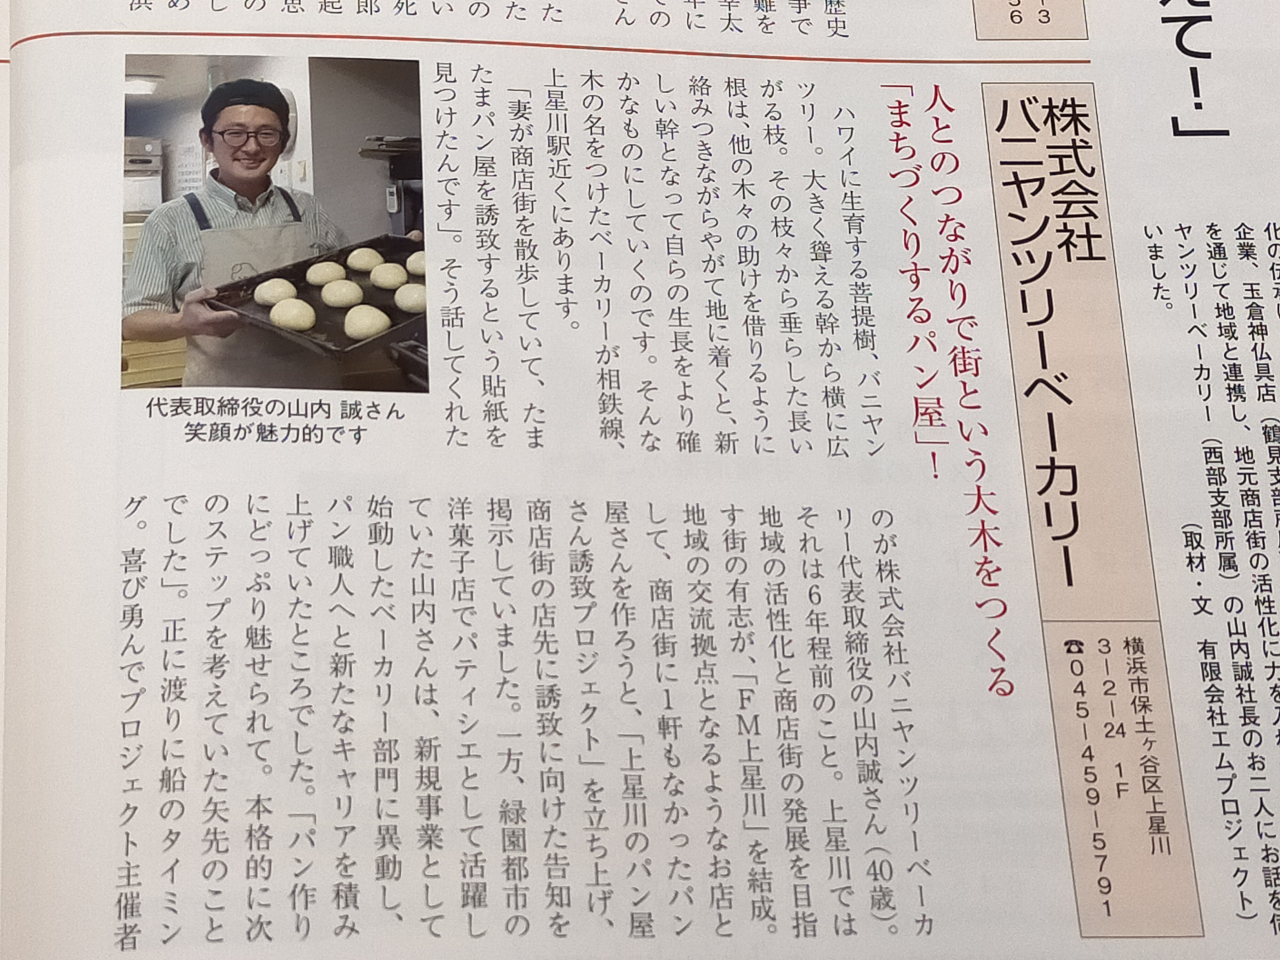 えて！」
化の伝承に
企業、玉倉神仏具店（鶴見支部所属）
を通じて地域と連携し、地元商店街の活性化に力を入れ
ヤンツリーベーカリー（西部支部所属）の山内誠社長のお二人にお話を伺
いました。
（取材・文　有限会社エムプロジェクト）
株式会社
バニヤンツリーベーカリー
横浜市保土ヶ谷区上星川
3－2－24　1F
☎045－459－5791
人とのつながりで街という大木をつくる
「まちづくりするパン屋」！
ハワイに生育する菩提樹、バニヤン
ツリー。大きく聳える幹から横に広
がる枝。その枝々から垂らした長い
根は、他の木々の助けを借りるように
絡みつきながらやがて地に着くと、新
しい幹となって自らの生長をより確
かなものにしていくのです。そんな
木の名をつけたベーカリーが相鉄線、
上星川駅近くにあります。
「妻が商店街を散歩していて、たま
たまパン屋を誘致するという貼紙を
見つけたんです」。そう話してくれた
代表取締役の山内 誠さん
笑顔が魅力的です
のが株式会社バニヤンツリーベーカ
リー代表取締役の山内誠さん（40歳）。
それは6年程前のこと。上星川では
地域の活性化と商店街の発展を目指
す街の有志が、「FM上星川」を結成。
地域の交流拠点となるようなお店と
して、商店街に1軒もなかったパン
屋さんを作ろうと、「上星川のパン屋
さん誘致プロジェクト」を立ち上げ、
商店街の店先に誘致に向けた告知を
掲示していました。一方、緑園都市の
洋菓子店でパティシエとして活躍し
ていた山内さんは、新規事業として
始動したベーカリー部門に異動し、
パン職人へと新たなキャリアを積み
上げていたところでした。「パン作り
にどっぷり魅せられて。本格的に次
のステップを考えていた矢先のこと
でした」。正に渡りに船のタイミン
グ。喜び勇んでプロジェクト主催者